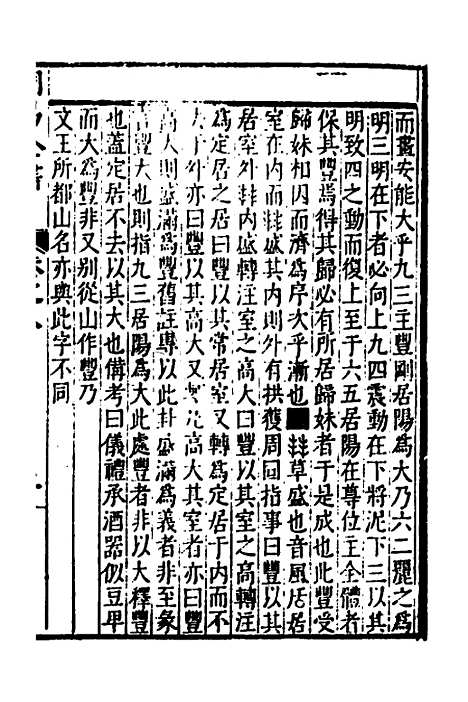 而蓋安能大乎九三主豐剛居陽爲大乃六二麗之爲
明三明在下者必向上九四震動在下將泥下三以其
明致四之動而復上至于六五居陽在尊位主全體者
保其豐焉得其歸必有所居歸妹者于是成也此豐受
歸妹相因而濟爲序次乎漸也 丰草盛也音風居居
室在内而丰盛其内則外有拱獲周回指事曰豐以其
居室外丰内盛轉注室之高大曰豐以其室之高轉注
爲定居之居曰豐以其常居室又轉爲定居于内而不
于外亦曰豐以其高大又高大其室者亦曰豐
高大則盛滿爲豐舊註專以此卦盛滿爲義者非至彖
言豐大也則指九三居陽爲大此處豐者非以大釋豐
也蓋定居不去以其大也備考曰儀禮承酒器似豆早
而大爲豐非又别從山作豐乃
文王所都山名亦與此字不同